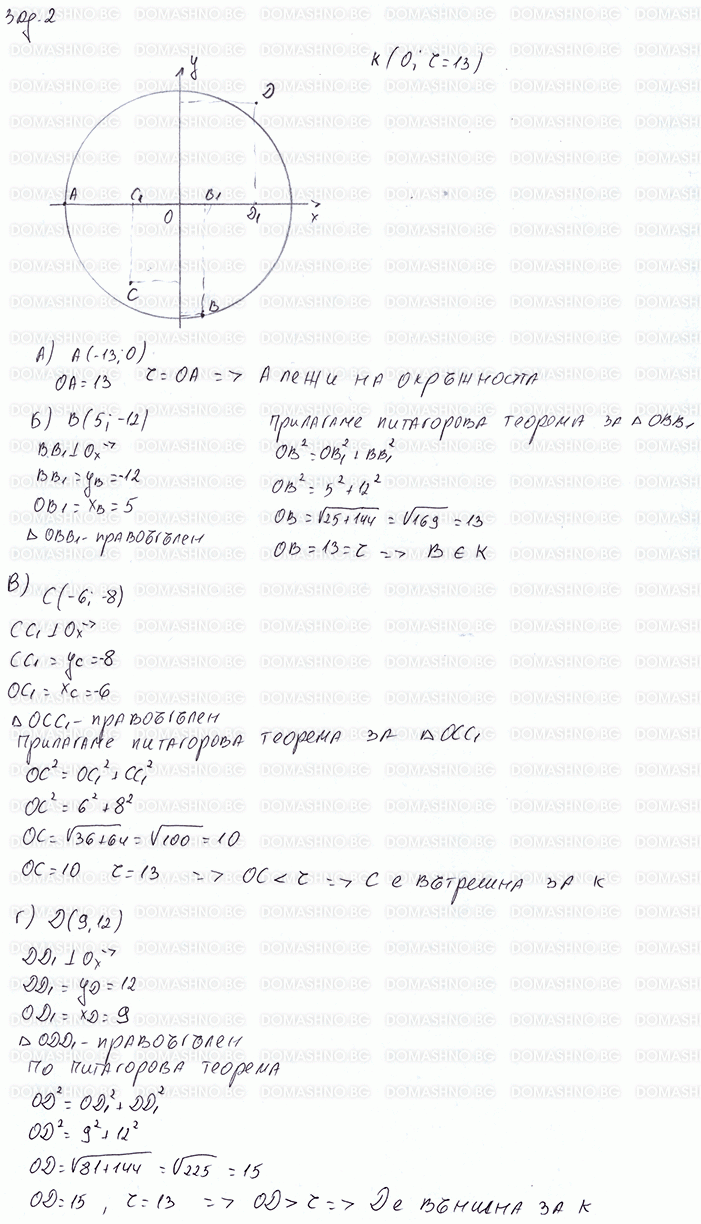 Зад. 2
K(O; r=13)
y
D
A
C₁
B₁
O
D₁
x
C
B
А) A(-13; 0)
OA = 13 r = OA => A лежи на окръжността
Б) B(5; -12)
BB₁ ⊥ Ox→
BB₁ = yB = -12
OB₁ = xB = 5
△OBB₁ - правоъгълен
Прилагаме питагорова теорема за △OBB₁
OB² = OB₁² + BB₁²
OB² = 5² + 12²
OB = √25+144 = √169 = 13
OB = 13 = r => B ∈ K
В) C(-6; -8)
CC₁ ⊥ Ox→
CC₁ = yC = -8
OC₁ = xC = -6
△OCC₁ - правоъгълен
Прилагаме питагорова теорема за △OCC₁
OC² = OC₁² + CC₁²
OC² = 6² + 8²
OC = √36+64 = √100 = 10
OC = 10 r = 13 => OC < r => C е вътрешна за K
Г) D(9, 12)
DD₁ ⊥ Ox→
DD₁ = yD = 12
OD₁ = xD = 9
△ODD₁ - правоъгълен
По питагорова теорема
OD² = OD₁² + DD₁²
OD² = 9² + 12²
OD = √81+144 = √225 = 15
OD = 15, r = 13 => OD > r => D е външна за K
DOMASHNO.BG